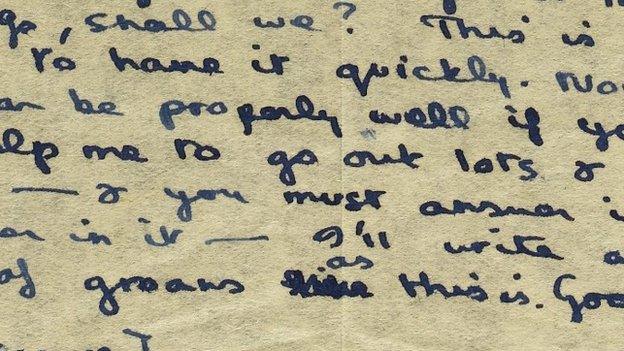 shall we? This is
to have it quickly.
an be properly well if yo
elp me to go out lots &
— & you must answer i
in it — I'll write a
as
groans this is. Goo